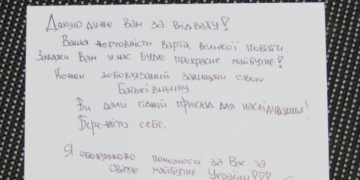 Дякую дуже Вам за відвагу!
Ваша жертовність варта великої поваги.
Завдяки Вам у нас буде прекрасне майбутнє!
Кожен зобов'язаний захищати свою
Батьківщину
Ви дали гідний приклад для наслідування!
Бережіть себе.
Я обов'язково помолюсь за Вас та
світле майбутнє України!!!